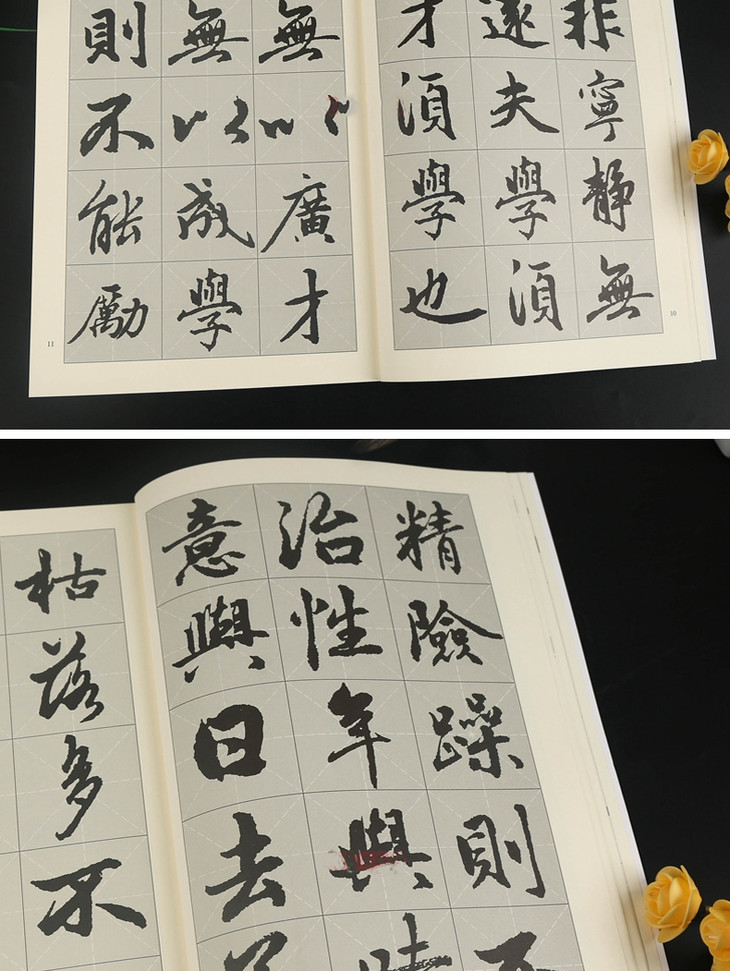 非寧靜無
遠夫學須
才須學也
10
無以廣才
無以成學
則不能勵
11
精險躁則不
治性年與時
意與日去
枯落多不